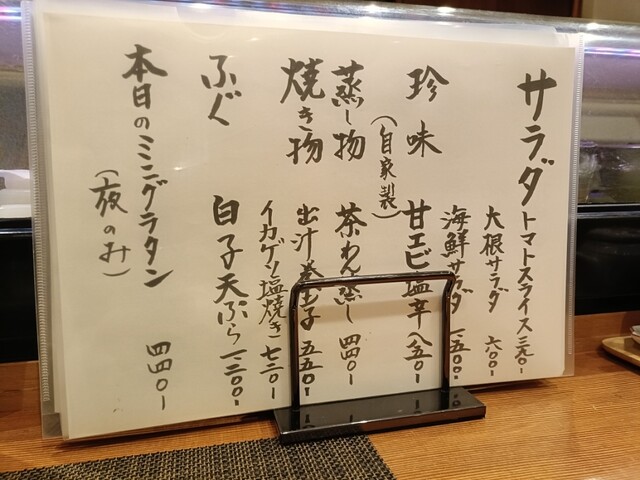 サラダ トマトスライス 三九〇-
大根サラダ 六〇〇-
海鮮サラダ 一、五〇〇-
珍味 甘エビ塩辛 八五〇-
(自家製)
蒸し物 茶わん蒸し 四四〇-
焼き物 出汁巻玉子 五五〇-
イカゲソ塩焼き 七二〇-
ふぐ 白子天ぷら 一、二〇〇-
本日のミニグラタン 四四〇-
(夜のみ)